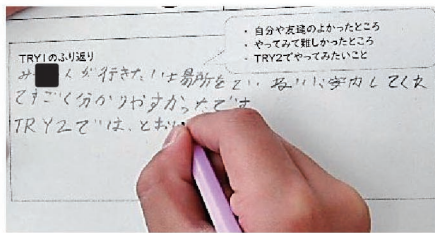 ・自分や友達のよかったところ
・やってみて難しかったところ
・TRY2でやってみたいこと
TRY1のふり返り
み くが行きたい場所をてい ねいに案内してくれ
てすごく分かりやすかったです
TRY2では、